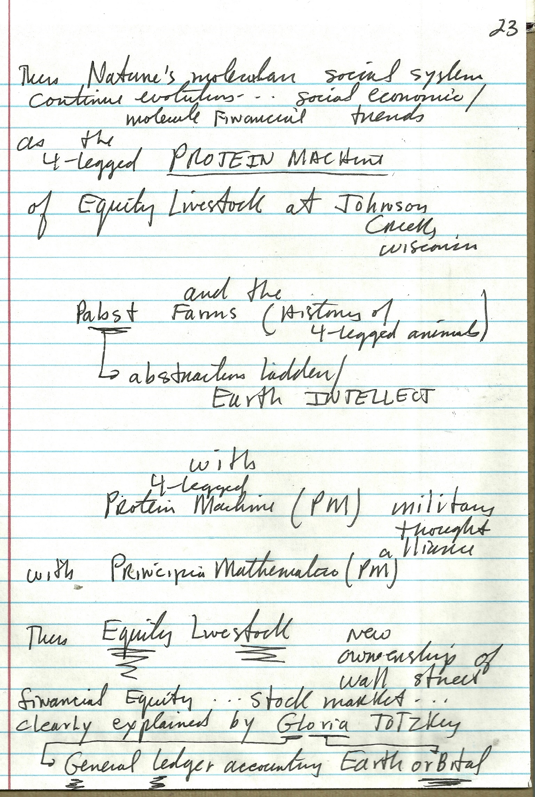 23
Thus Nature's molecular social system
continue evolution... social economic/
molecule Financial trends
as the
4-legged PROTEIN MACHINE
of Equity Livestock at Johnson
Creek,
Wisconsin
and the
Pabst Farms (History of
4-legged animals)
abstraction ladder/
Earth INTELLECT
with
4-legged
Protein Machine (PM) military
thought
alliance
with Principia Mathematica (PM)
Thus Equity Livestock new
ownership of
Wall Street
financial Equity ... stock market ...
clearly explained by Gloria ToTzKey
General Ledger accounting Earth orBital